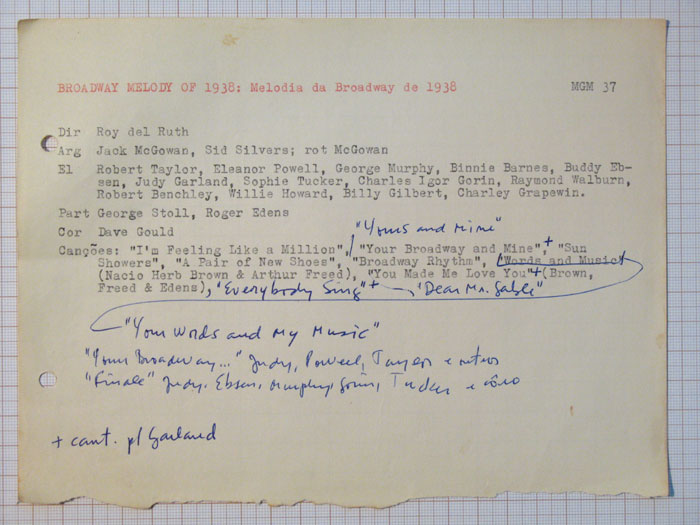 BROADWAY MELODY OF 1938: Melodia da Broadway de 1938 MGM 37
Dir Roy del Ruth
Arg Jack McGowan, Sid Silvers; rot McGowan
El Robert Taylor, Eleanor Powell, George Murphy, Binnie Barnes, Buddy Eb-
sen, Judy Garland, Sophie Tucker, Charles Igor Gorin, Raymond Walburn,
Robert Benchley, Willie Howard, Billy Gilbert, Charley Grapewin.
Part George Stoll, Roger Edens
Cor Dave Gould
"Yours and Mine"
Canções: "I'm Feeling Like a Million", "Your Broadway and Mine"+, "Sun
Showers", "A Pair of New Shoes", "Broadway Rhythm", "Words and Music"
(Nacio Herb Brown & Arthur Freed), "You Made Me Love You"+ (Brown,
Freed & Edens), "Everybody Sing"+ "Dear Mr. Gable"
"Your Words and My Music"
"Your Broadway..." Judy, Powell, Taylor e outros
"Finale" Judy, Ebsen, Murphy, Gorin, Tucker e côro
+ cant. p/ Garland